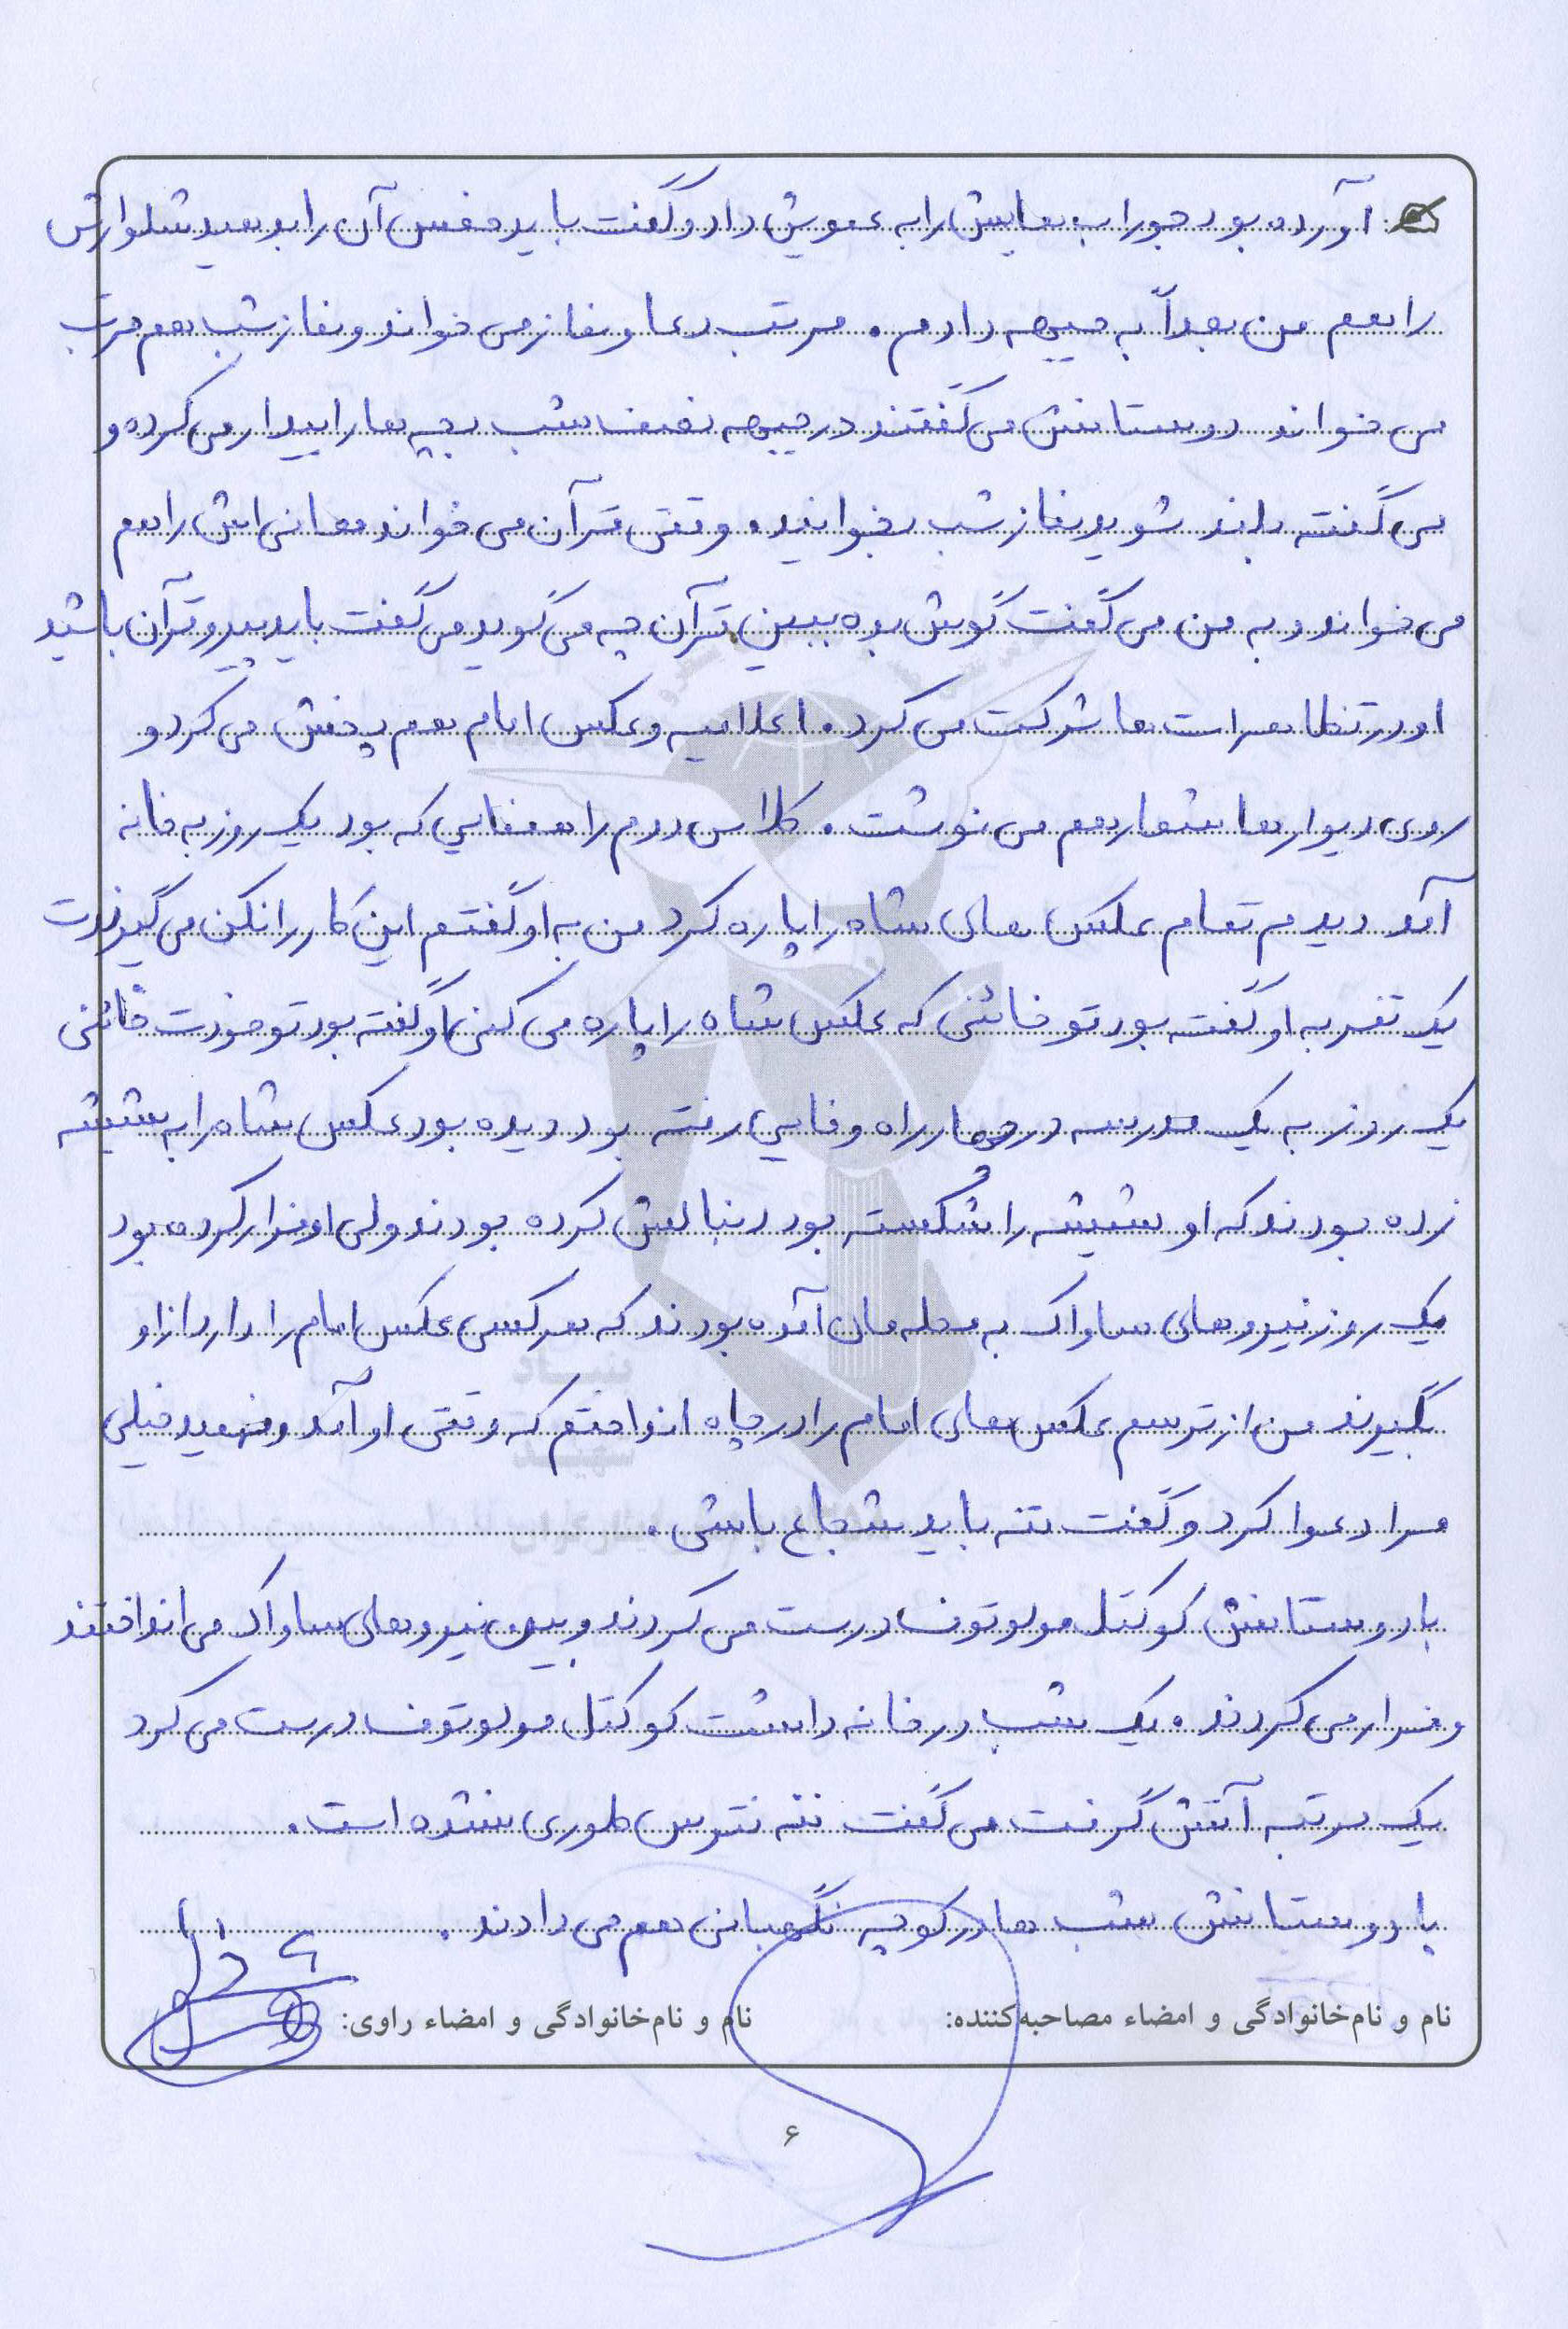 آورده بود جوراب هایش را به عمویش داد و گفت باید خمس آن را بدهید شلوارش
را هم من بعداً به جبهه دادم. مرتب دعا و نماز می خواند و نماز شب هم مرتب
می خواند دوستانش می گفتند در جبهه نصف شب بچه ها را بیدار می کرده و
می گفته بلند شوید نماز شب بخوانید. وقتی قرآن می خواند معانی اش را هم
می خواند و به من می گفت گوش بده ببین قرآن چه می گوید می گفت باید پیرو قرآن باشید
او در تظاهرات ها شرکت می کرد. اعلامیه و عکس امام هم پخش می کرد و
روی دیوار ها شعار هم می نوشت. کلاس دوم راهنمایی که بود یک روز به خانه
آمد دیدم تمام عکس های شاه را پاره کرد من به او گفتم این کار را نکن می گیرندت
یک نفر به او گفته بود تو خائنی که عکس شاه را پاره می کنی او گفته بود تو خودت خائنی
یک روز به یک مدرسه در چهار راه وفایی رفته بود دیده بود عکس شاه را به شیشه
زده بودند که او شیشه را شکسته بود دنبالش کرده بودند ولی او فرار کرده بود
یک روز نیروهای ساواک به محله مان آمده بودند که هر کسی عکس امام را دارد از او
بگیرند من از ترسم عکس های امام را در چاه انداختم که وقتی او آمد و فهمید خیلی
مرا دعوا کرد و گفت ننه باید شجاع باشی.
با دوستانش کوکتل مولوتوف درست می کردند و بین نیروهای ساواک می انداختند
و فرار می کردند. یک شب در خانه داشت کوکتل مولوتوف درست می کرد
یک مرتبه آتش گرفت می گفت ننه نترس طوری نشده است.
با دوستانش شب ها در کوچه نگهبانی هم می دادند.
نام و نام‌خانوادگی و امضاء مصاحبه‌کننده: نام و نام‌خانوادگی و امضاء راوی:
۶